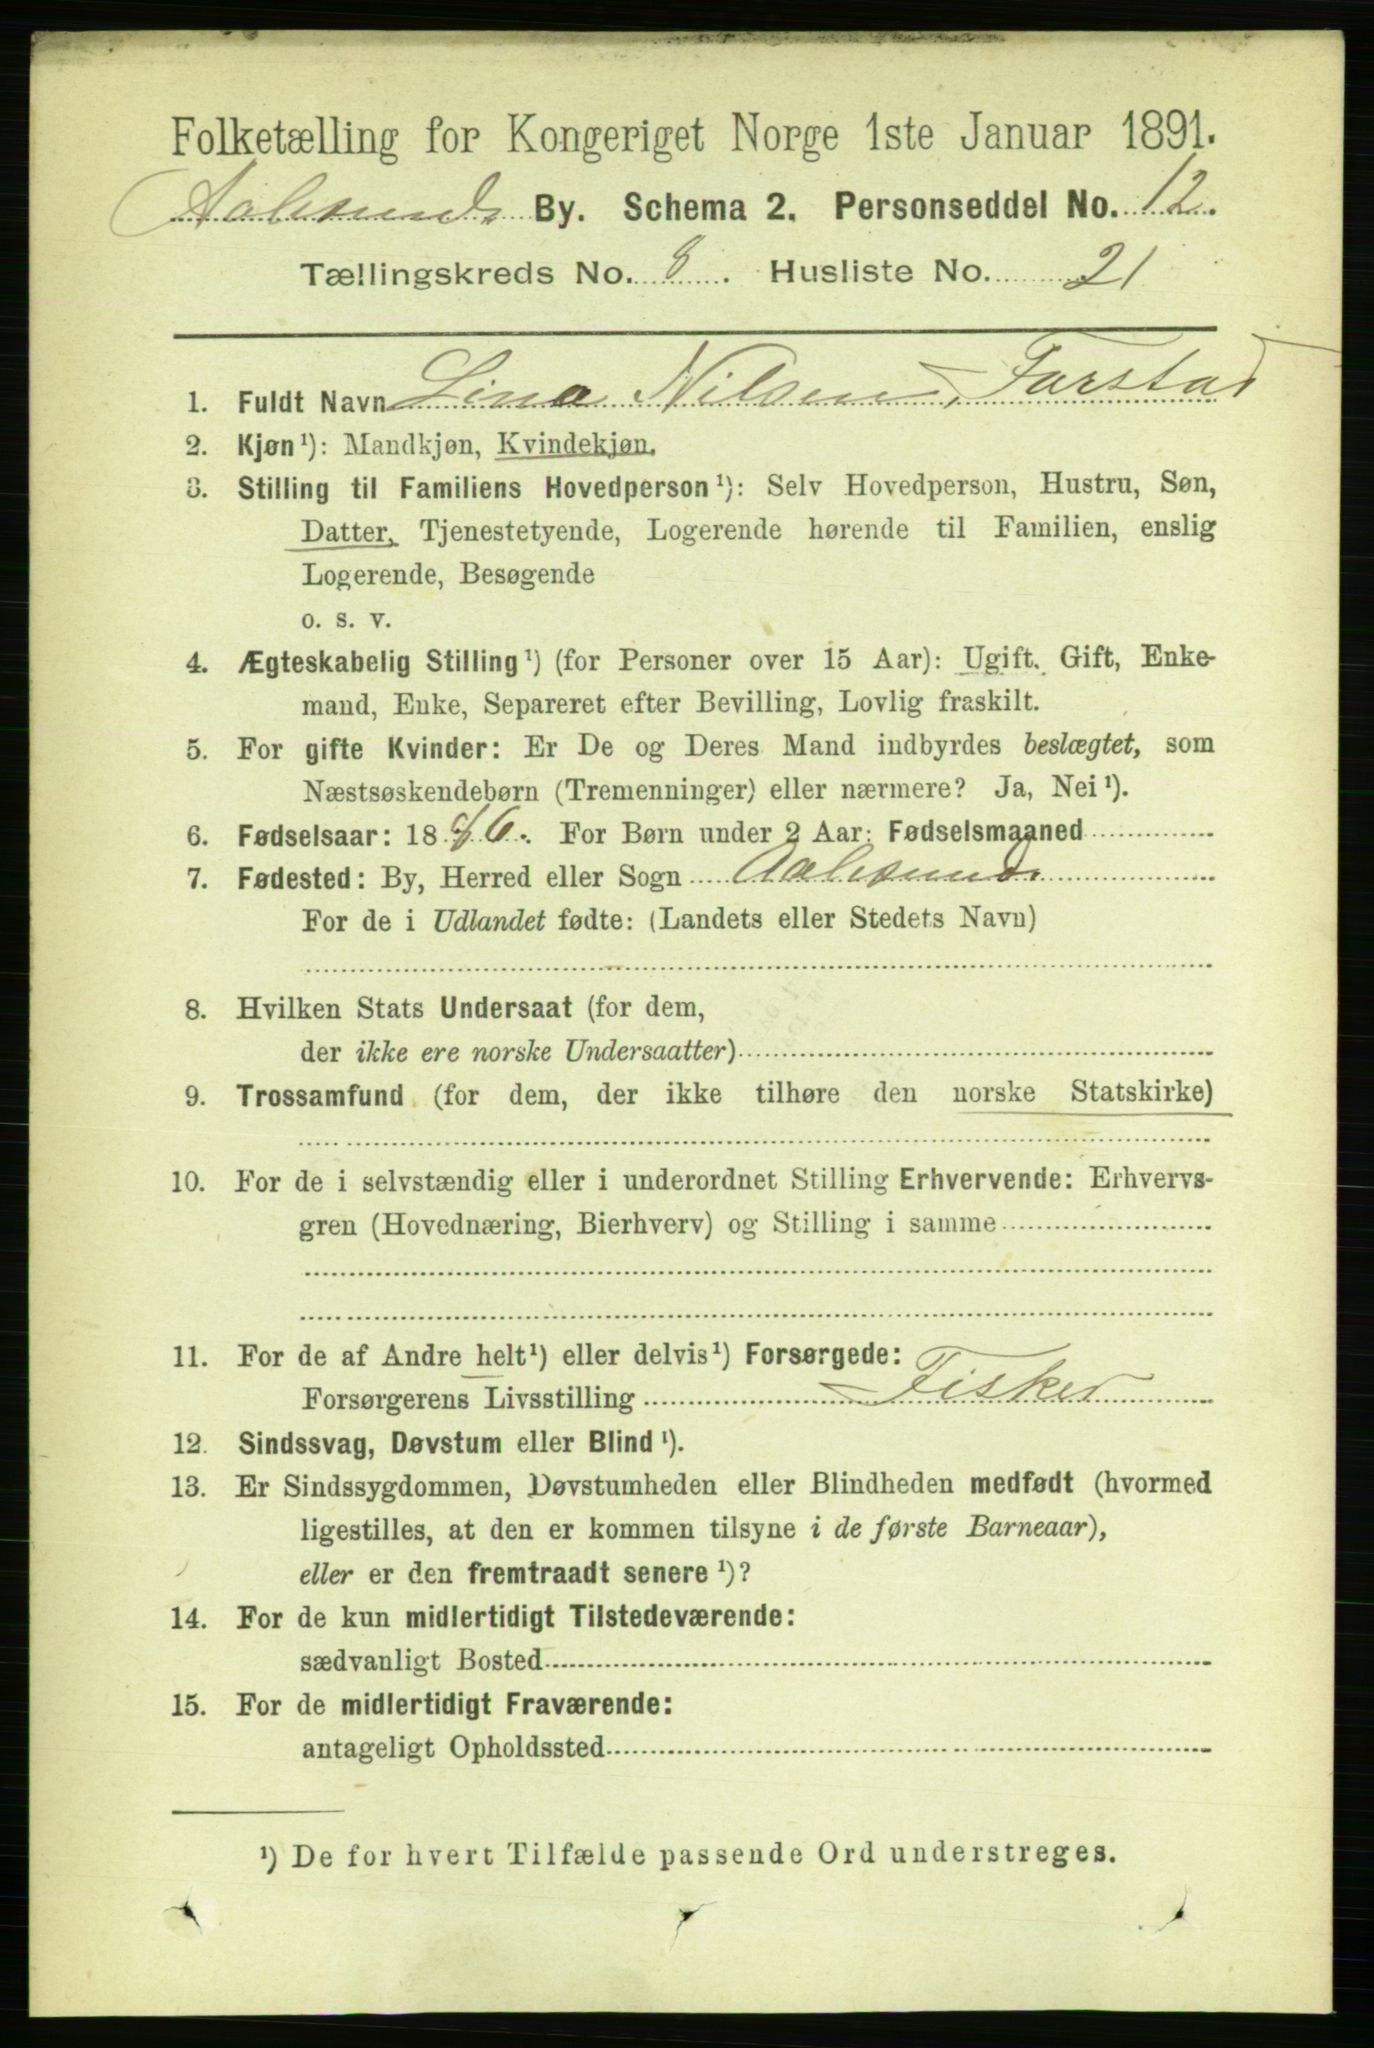 Folketælling for Kongeriget Norge 1ste Januar 1891.
Aalesunds By. Schema 2. Personseddel No. 12.
Tællingskreds No. 8. Husliste No. 21
1. Fuldt Navn Lina Nilsen, Farstad
2. Kjøn¹): Mandkjøn, Kvindekjøn.
3. Stilling til Familiens Hovedperson¹): Selv Hovedperson, Hustru, Søn,
Datter, Tjenestetyende, Logerende hørende til Familien, enslig
Logerende, Besøgende
o. s. v.
4. Ægteskabelig Stilling¹) (for Personer over 15 Aar): Ugift. Gift, Enke-
mand, Enke, Separeret efter Bevilling, Lovlig fraskilt.
5. For gifte Kvinder: Er De og Deres Mand indbyrdes beslægtet, som
Næstsøskendebørn (Tremenninger) eller nærmere? Ja, Nei¹).
6. Fødselsaar: 1886. For Børn under 2 Aar: Fødselsmaaned
7. Fødested: By, Herred eller Sogn Aalesund
For de i Udlandet fødte: (Landets eller Stedets Navn)
8. Hvilken Stats Undersaat (for dem,
der ikke ere norske Undersaatter)
9. Trossamfund (for dem, der ikke tilhøre den norske Statskirke)
10. For de i selvstændig eller i underordnet Stilling Erhvervende: Erhvervs-
gren (Hovednæring, Bierhverv) og Stilling i samme
11. For de af Andre helt¹) eller delvis¹) Forsørgede:
Forsørgerens Livsstilling Fisker
12. Sindssvag, Døvstum eller Blind¹).
13. Er Sindssygdommen, Døvstumheden eller Blindheden medfødt (hvormed
ligestilles, at den er kommen tilsyne i de første Barneaar),
eller er den fremtraadt senere¹)?
14. For de kun midlertidigt Tilstedeværende:
sædvanligt Bosted
15. For de midlertidigt Fraværende:
antageligt Opholdssted
¹) De for hvert Tilfælde passende Ord understreges.